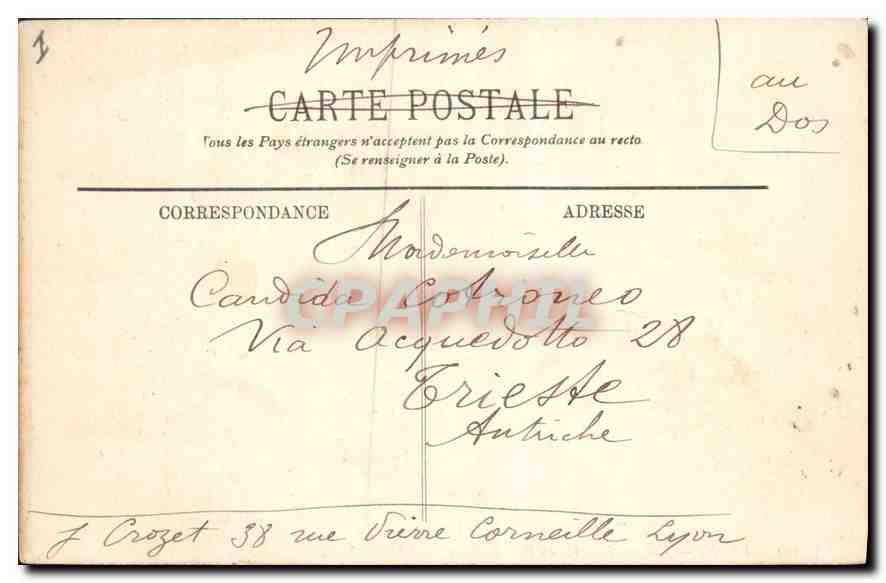 1
Imprimés
au
Dos
CARTE POSTALE
Tous les Pays étrangers n'acceptent pas la Correspondance au recto
(Se renseigner à la Poste).
CORRESPONDANCE
ADRESSE
Mademoiselle
Candida Cotroneo
CPAPHIL
Via Acquedotto 28
Trieste
Autriche
J Crozet 38 rue Pierre Corneille Lyon